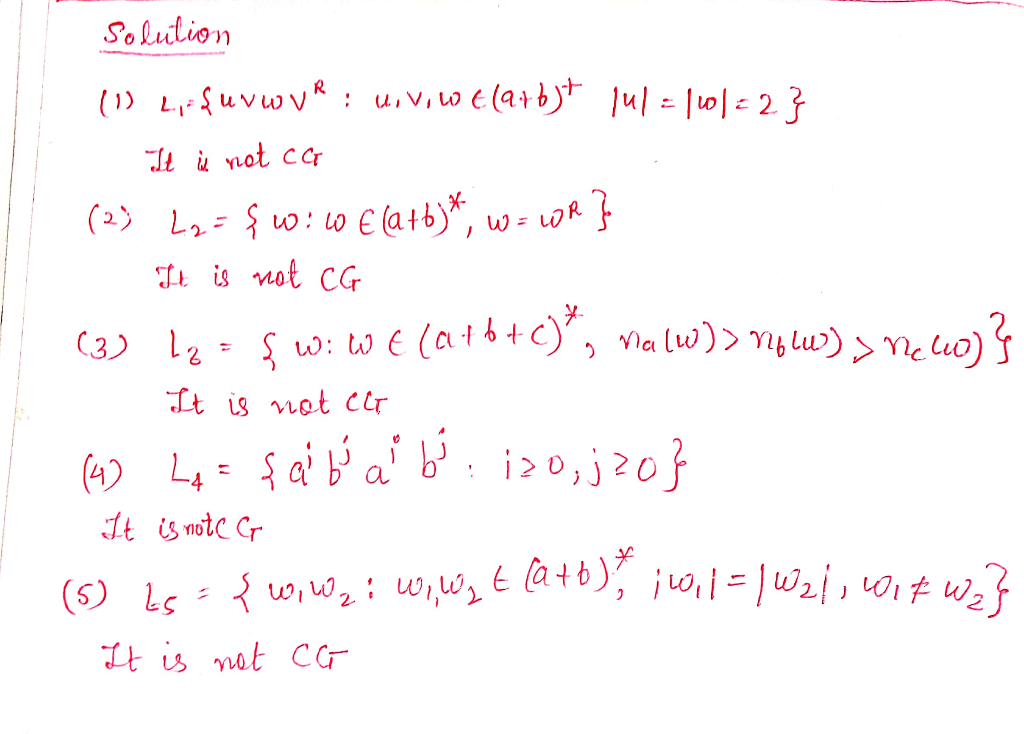 Solution
(1) L₁={uvwvᴿ : u,v,w ∈(a+b)⁺ |u| = |w|= 2}
It is not CG
(2) L₂= {w: w ∈(a+b)*, w = wᴿ}
It is not CG
(3) L₃ = {w: w ∈ (a+b+c)*, na(w)> nb(w) > nc(w)}
It is not CG
(4) L₄ = {aⁱ bʲ aⁱ bʲ : i≥0, j≥0}
It is not CG
(5) L₅ = {w₁w₂ : w₁,w₂ ∈ (a+b)*, |w₁|=|w₂|, w₁ ≠ w₂}
It is not CG